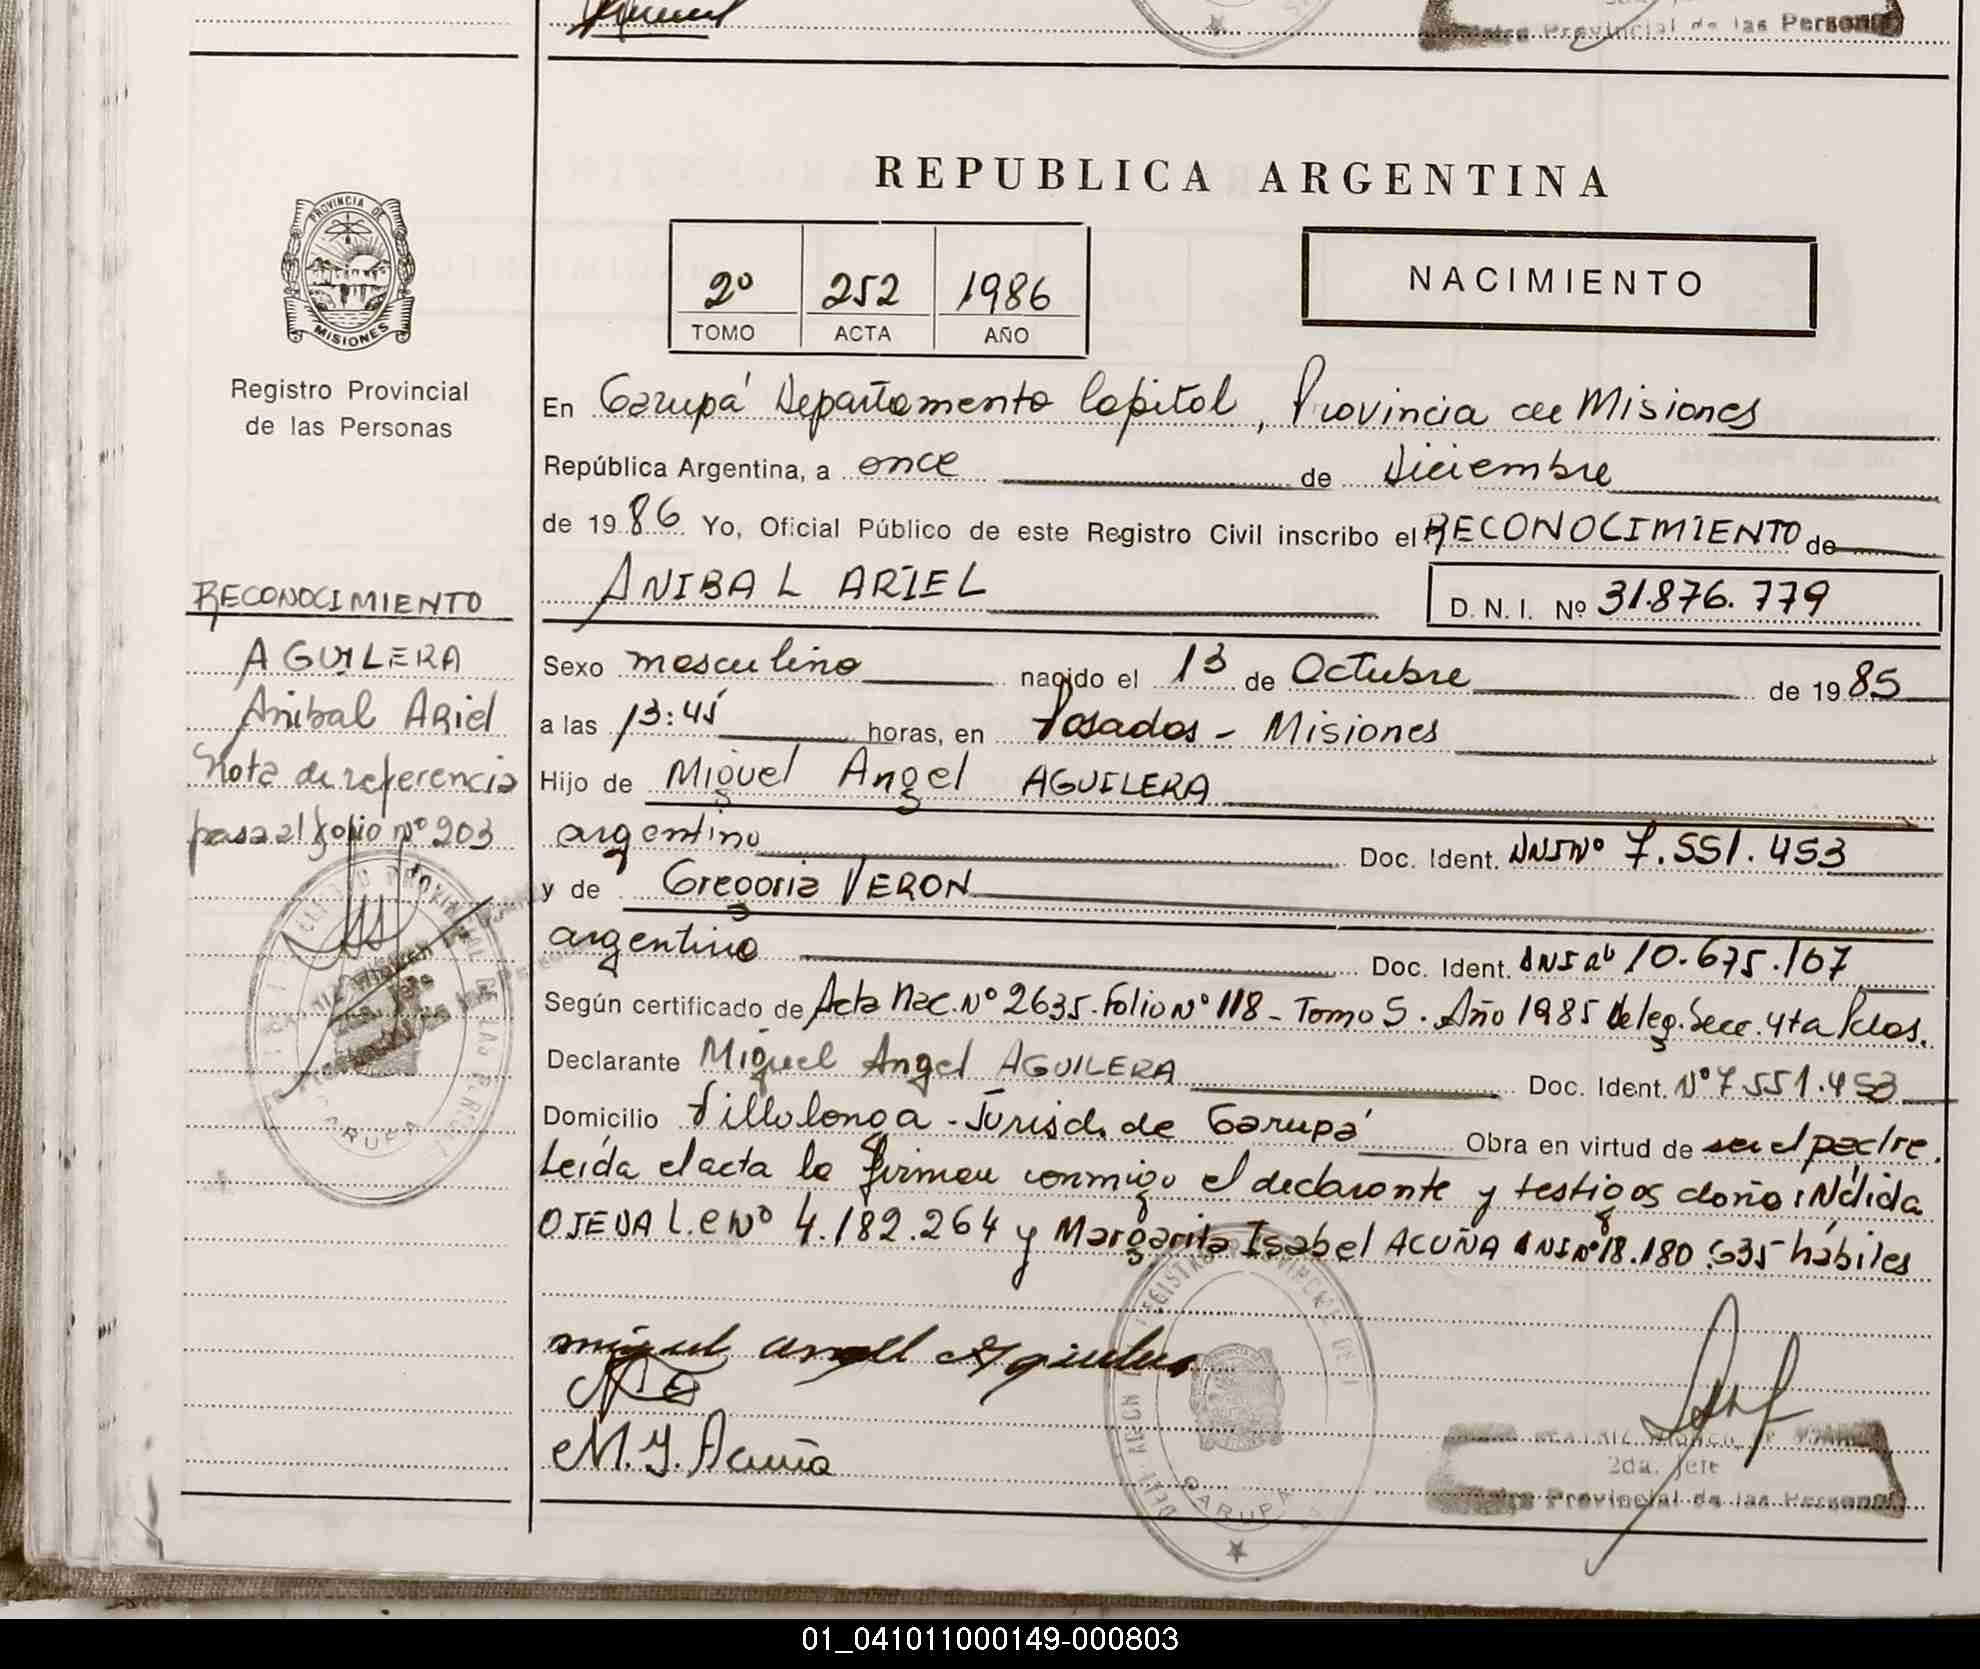 Provincial de las Personas
REPUBLICA ARGENTINA
PROVINCIA DE
MISIONES
Registro Provincial
de las Personas
2º 252 1986
TOMO ACTA AÑO
NACIMIENTO
En Garupá Departamento Capital, Provincia de Misiones
República Argentina, a once de Diciembre
de 1986 Yo, Oficial Público de este Registro Civil inscribo el RECONOCIMIENTO de
ANIBAL ARIEL D.N.I. Nº 31.876.779
Sexo masculino nacido el 13 de Octubre de 1985
a las 13:45 horas, en Posadas - Misiones
Hijo de Miguel Angel AGUILERA
argentino Doc. Ident. DNI Nº 7.551.453
y de Gregoria VERON
argentina Doc. Ident. DNI Nº 10.675.167
Según certificado de Acta Nac. Nº 2635. Folio Nº 118 - Tomo 5. Año 1985 Deleg. Secc. 4ta Pdas.
Declarante Miguel Angel AGUILERA Doc. Ident. Nº 7.551.453
Domicilio Villalonga - Jurisd. de Garupá Obra en virtud de ser el padre.
Leída el acta la firman conmigo el declarante y testigos doña
OJEDA L.C Nº 4.182.264 y Margarita Isabel ACUÑA DNI Nº 18.180.635 hábiles
RECONOCIMIENTO
AGUILERA
Anibal Ariel
Nota de referencia
pasa al folio nº 203
GARUPA
miguel angel Aguilera
M. I. Acuña
GARUPA
2da. Jefe
Provincial de las Personas
01_041011000149-000803